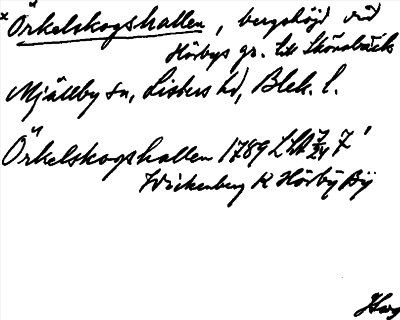 × Örkelskogshallen, bergshöjd vid
Hörbys gr. till Skönabäck
Mjällby sn, Listers hd, Blek. l.
Örkelskogshallen 1789 LHA 7/24 7'
Wickenberg K Hörby By